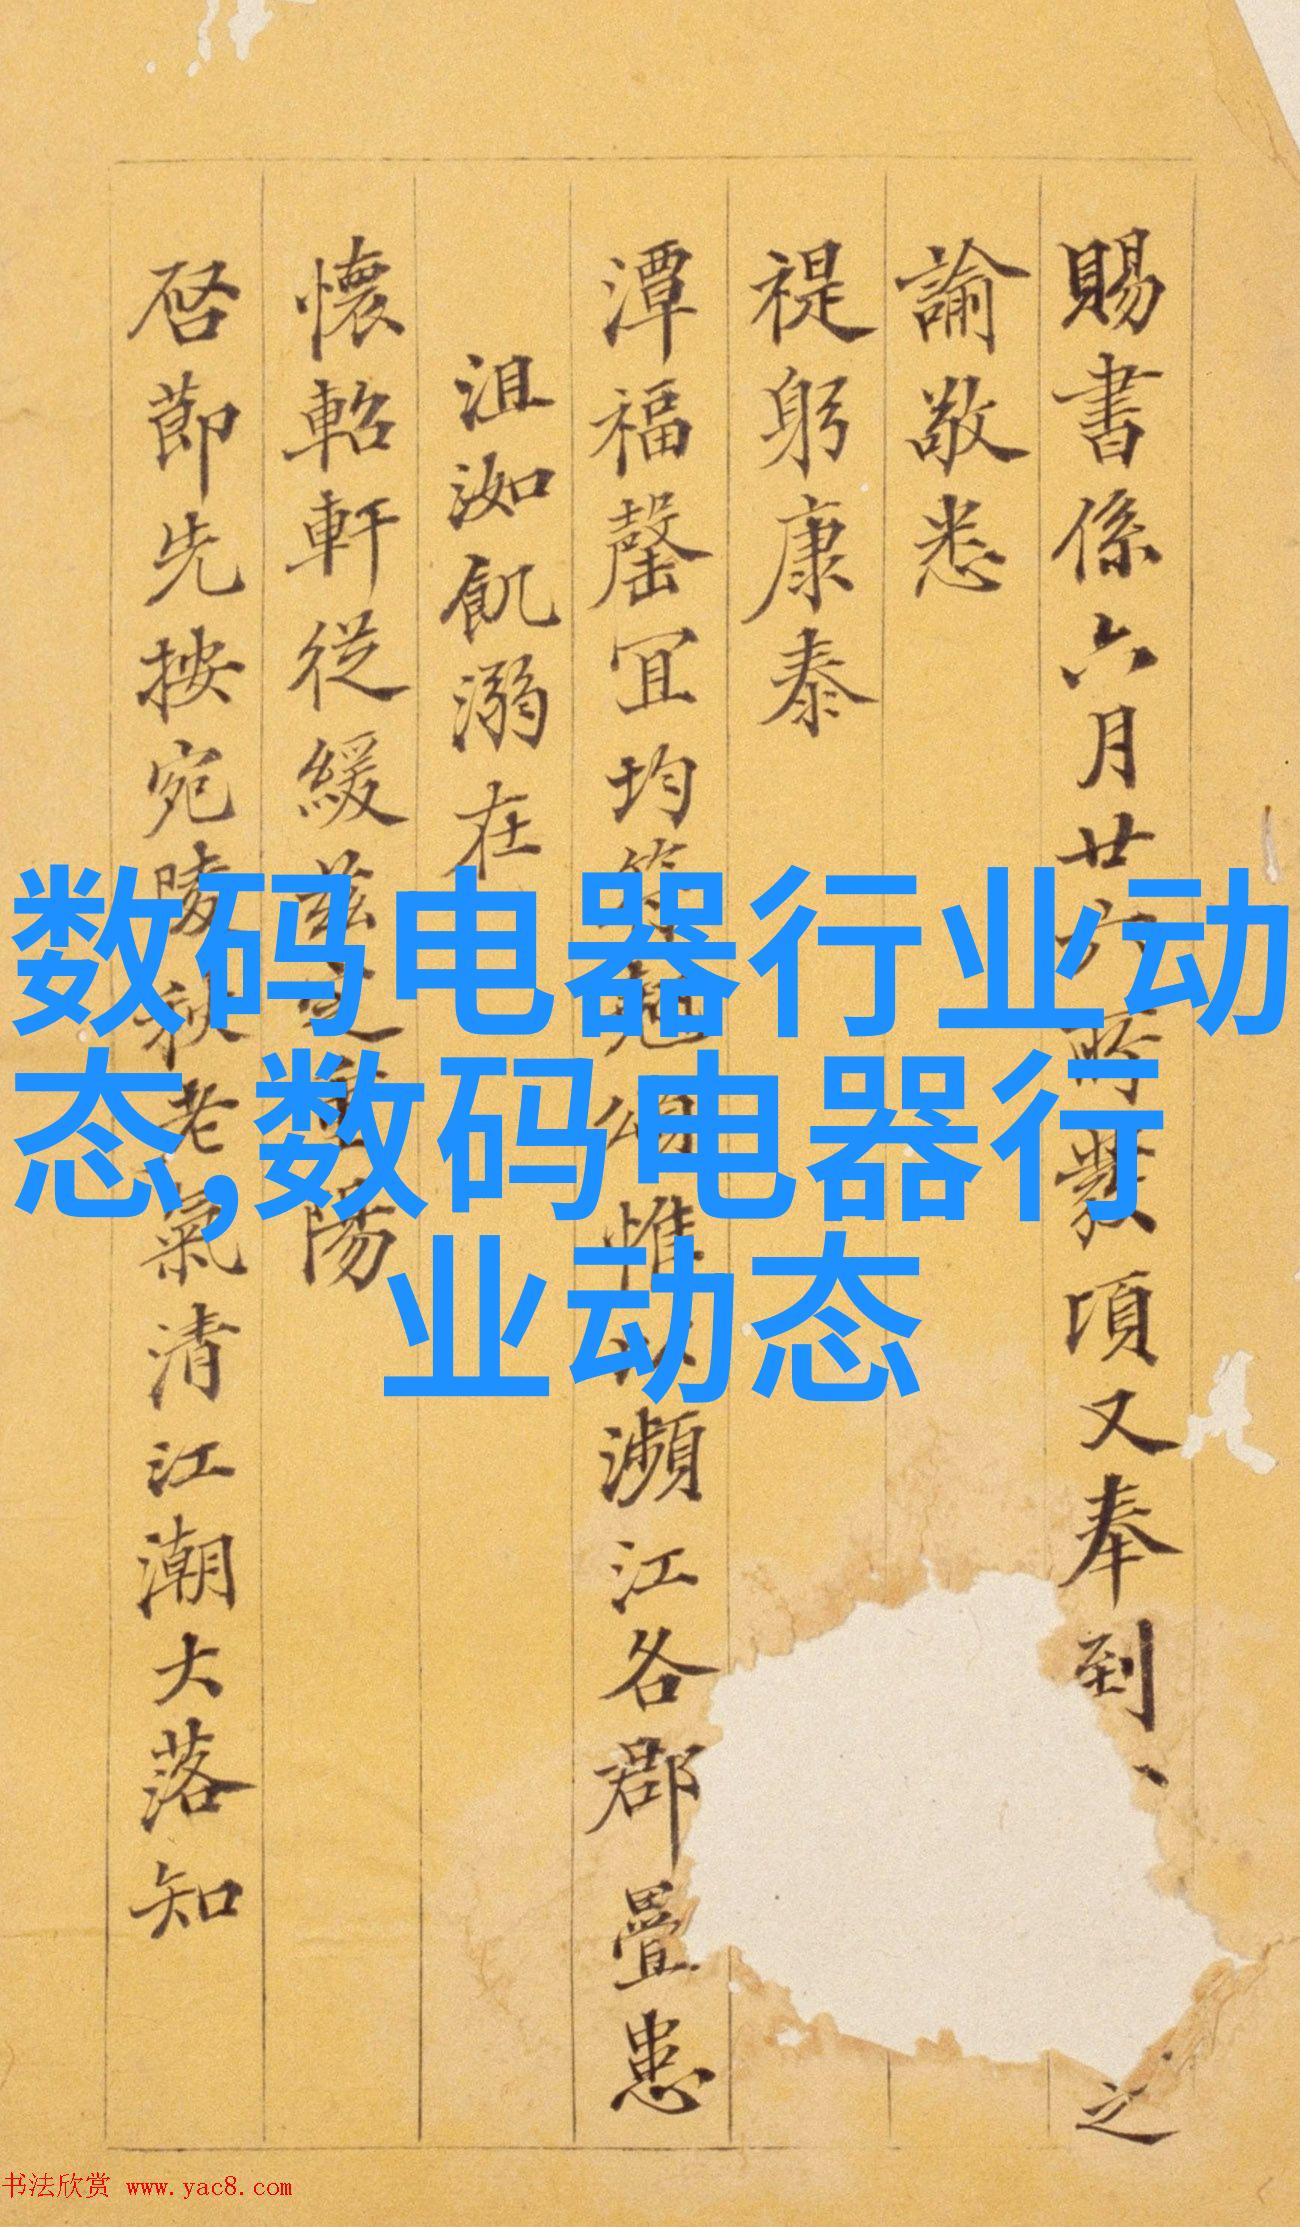 賜書係六月廿六
蒙項又奉到
之
諭敬悉
禔躬康泰
潭福罄宜均
惟
瀕江各郡疊患
沮洳飢溺在
懷軺軒從緩茲
陽
启莭先按宛陵秋老氣清江潮大落知
数码电器行业动
态,数码电器行
业动态
书法欣赏 www.yac8.com